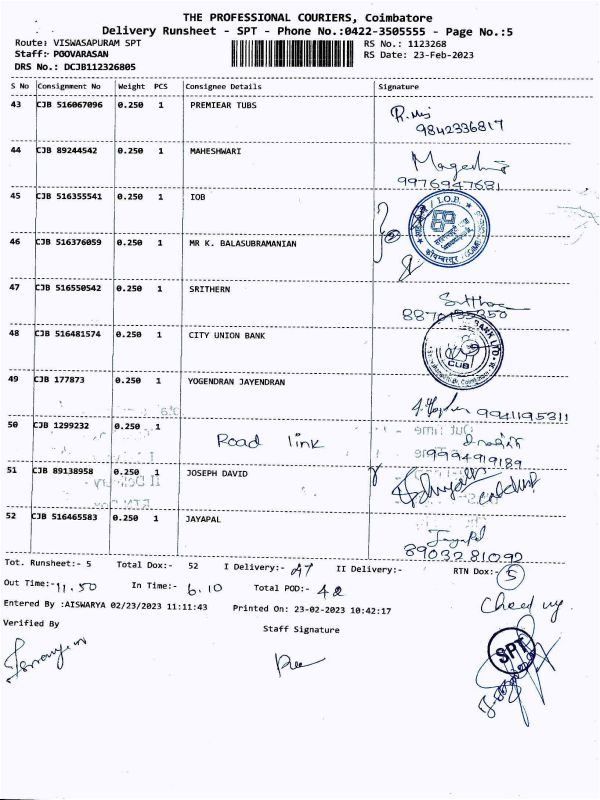 THE PROFESSIONAL COURIERS, Coimbatore
Delivery Runsheet - SPT - Phone No.:0422-3505555 - Page No.:5
Route: VISWASAPURAM SPT
RS No.: 1123268
Staff:- POOVARASAN
RS Date: 23-Feb-2023
DRS No.: DCJB112326805
S No Consignment No Weight PCS Consignee Details Signature
43 CJB 516067096 0.250 1 PREMIEAR TUBS
9842336817
44 CJB 89244542 0.250 1 MAHESHWARI
9976947681
45 CJB 516355541 0.250 1 IOB
I.O.B.
46 CJB 516376059 0.250 1 MR K. BALASUBRAMANIAN
47 CJB 516550542 0.250 1 SRITHERN
48 CJB 516481574 0.250 1 CITY UNION BANK
CUB
49 CJB 177873 0.250 1 YOGENDRAN JAYENDRAN
9941195311
50 CJB 1299232 0.250 1 Road link
9994919189
51 CJB 89138958 0.250 1 JOSEPH DAVID
52 CJB 516465583 0.250 1 JAYAPAL
Jayapal
8903281092
Tot. Runsheet:- 5 Total Dox:- 52 I Delivery:- 47 II Delivery:- RTN Dox:- 5
Out Time:- 11.50 In Time:- 6.10 Total POD:- 42
Entered By :AISWARYA 02/23/2023 11:11:43 Printed On: 23-02-2023 10:42:17
Verified By
Staff Signature
SPT